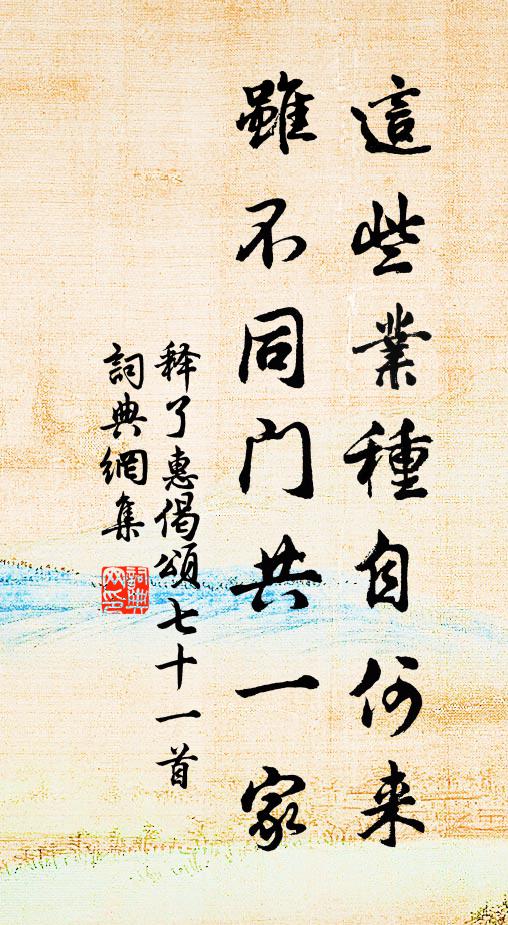 這些業種自何来
雖不同门共一家
释了惠偈頌七十一首
詞典網集
詞典网印